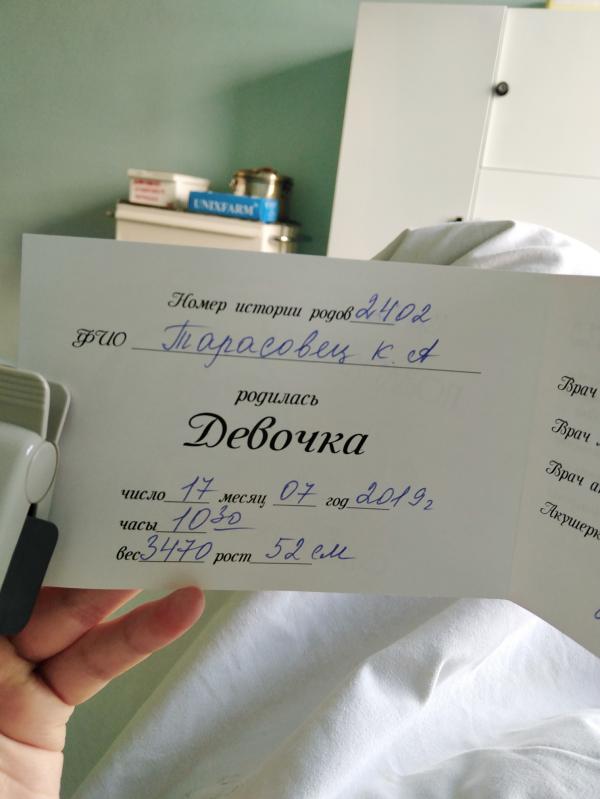 UNIXFARM®
Номер истории родов 2402
ФИО Тарасовец К. А
родилась
Девочка
число 17 месяц 07 год 2019г
часы 10 30
вес 3470 рост 52 см
Врач
Врач
Врач
Акушерк